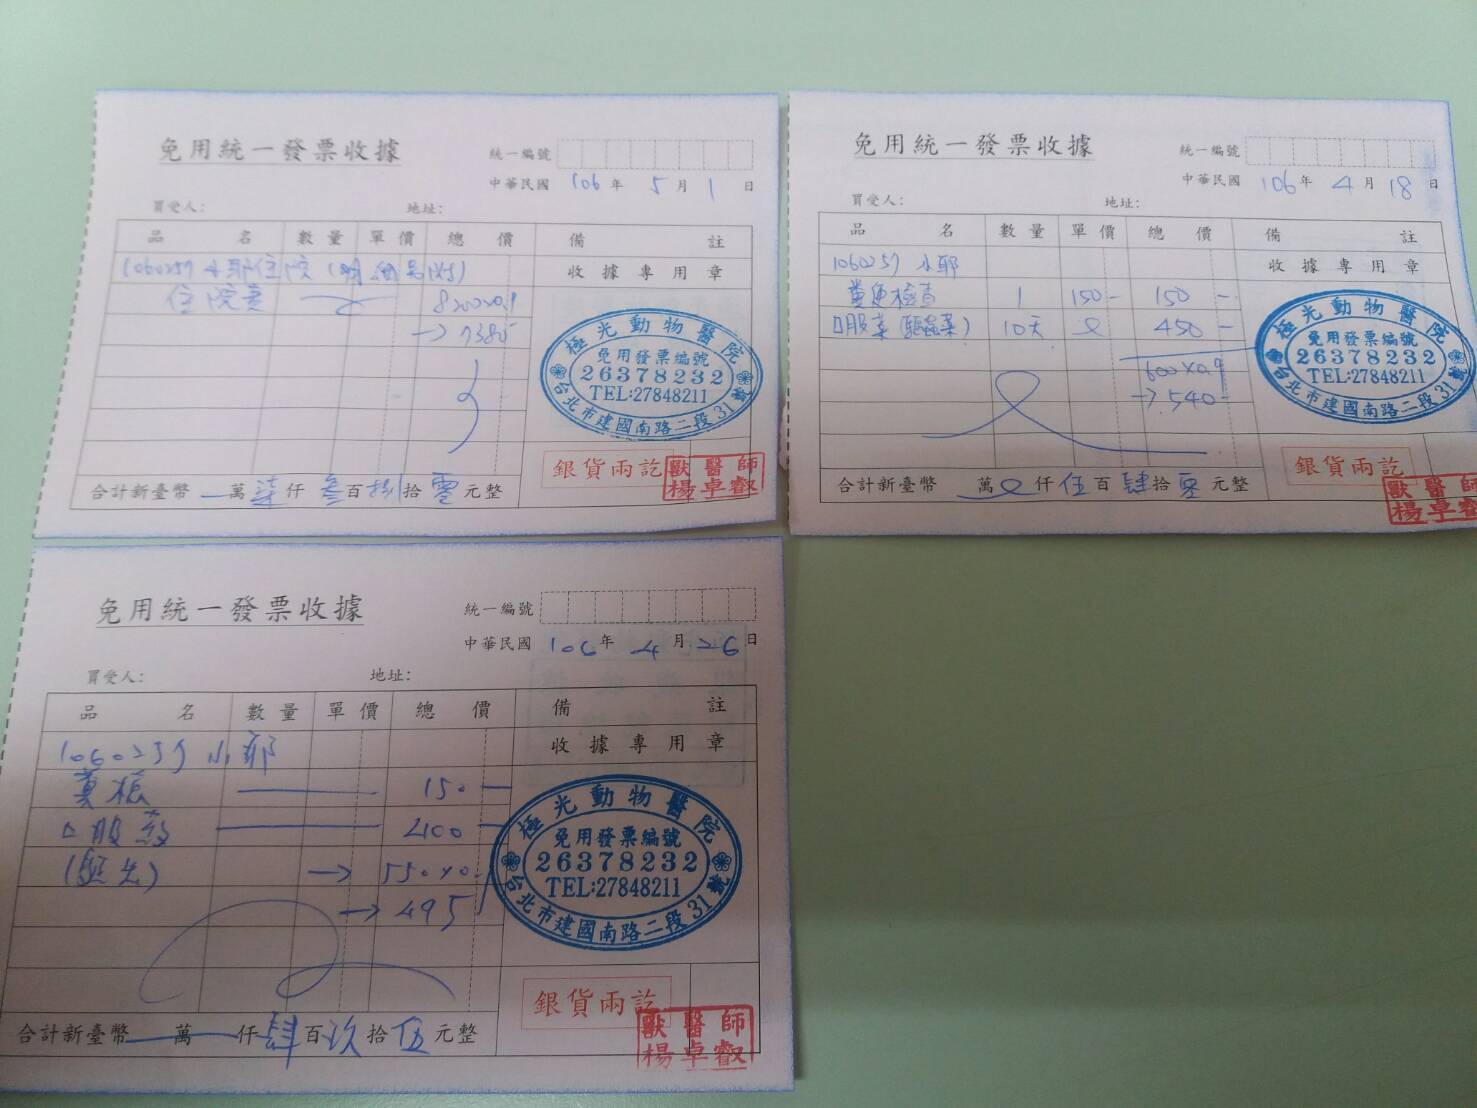 免用統一發票收據
統一編號
中華民國 106年 5月 1日
買受人: 地址:
品名 數量 單價 總價 備註
1060257 小耶住院(明細另附) 收據專用章
住院費 8200x0.9
→7380
極光動物醫院
免用發票編號
26378232
TEL:27848211
台北市建國南路二段31號
銀貨兩訖
獸醫師
楊卓叡
合計新臺幣 萬柒仟參百捌拾零元整
免用統一發票收據
統一編號
中華民國 106年 4月 18日
買受人: 地址:
品名 數量 單價 總價 備註
1060257 小耶 收據專用章
糞便檢查 1 150- 150-
口服藥(驅蟲藥) 10天 450-
600x0.9
→540-
極光動物醫院
免用發票編號
26378232
TEL:27848211
台北市建國南路二段31號
銀貨兩訖
獸醫師
楊卓叡
合計新臺幣 萬 仟伍百肆拾零元整
免用統一發票收據
統一編號
中華民國 106年 4月 26日
買受人: 地址:
品名 數量 單價 總價 備註
1060257 小耶 收據專用章
糞檢 150-
口服藥 400-
→ 550x0.
→ 495
極光動物醫院
免用發票編號
26378232
TEL:27848211
台北市建國南路二段31號
銀貨兩訖
獸醫師
楊卓叡
合計新臺幣 萬 仟肆百玖拾伍元整